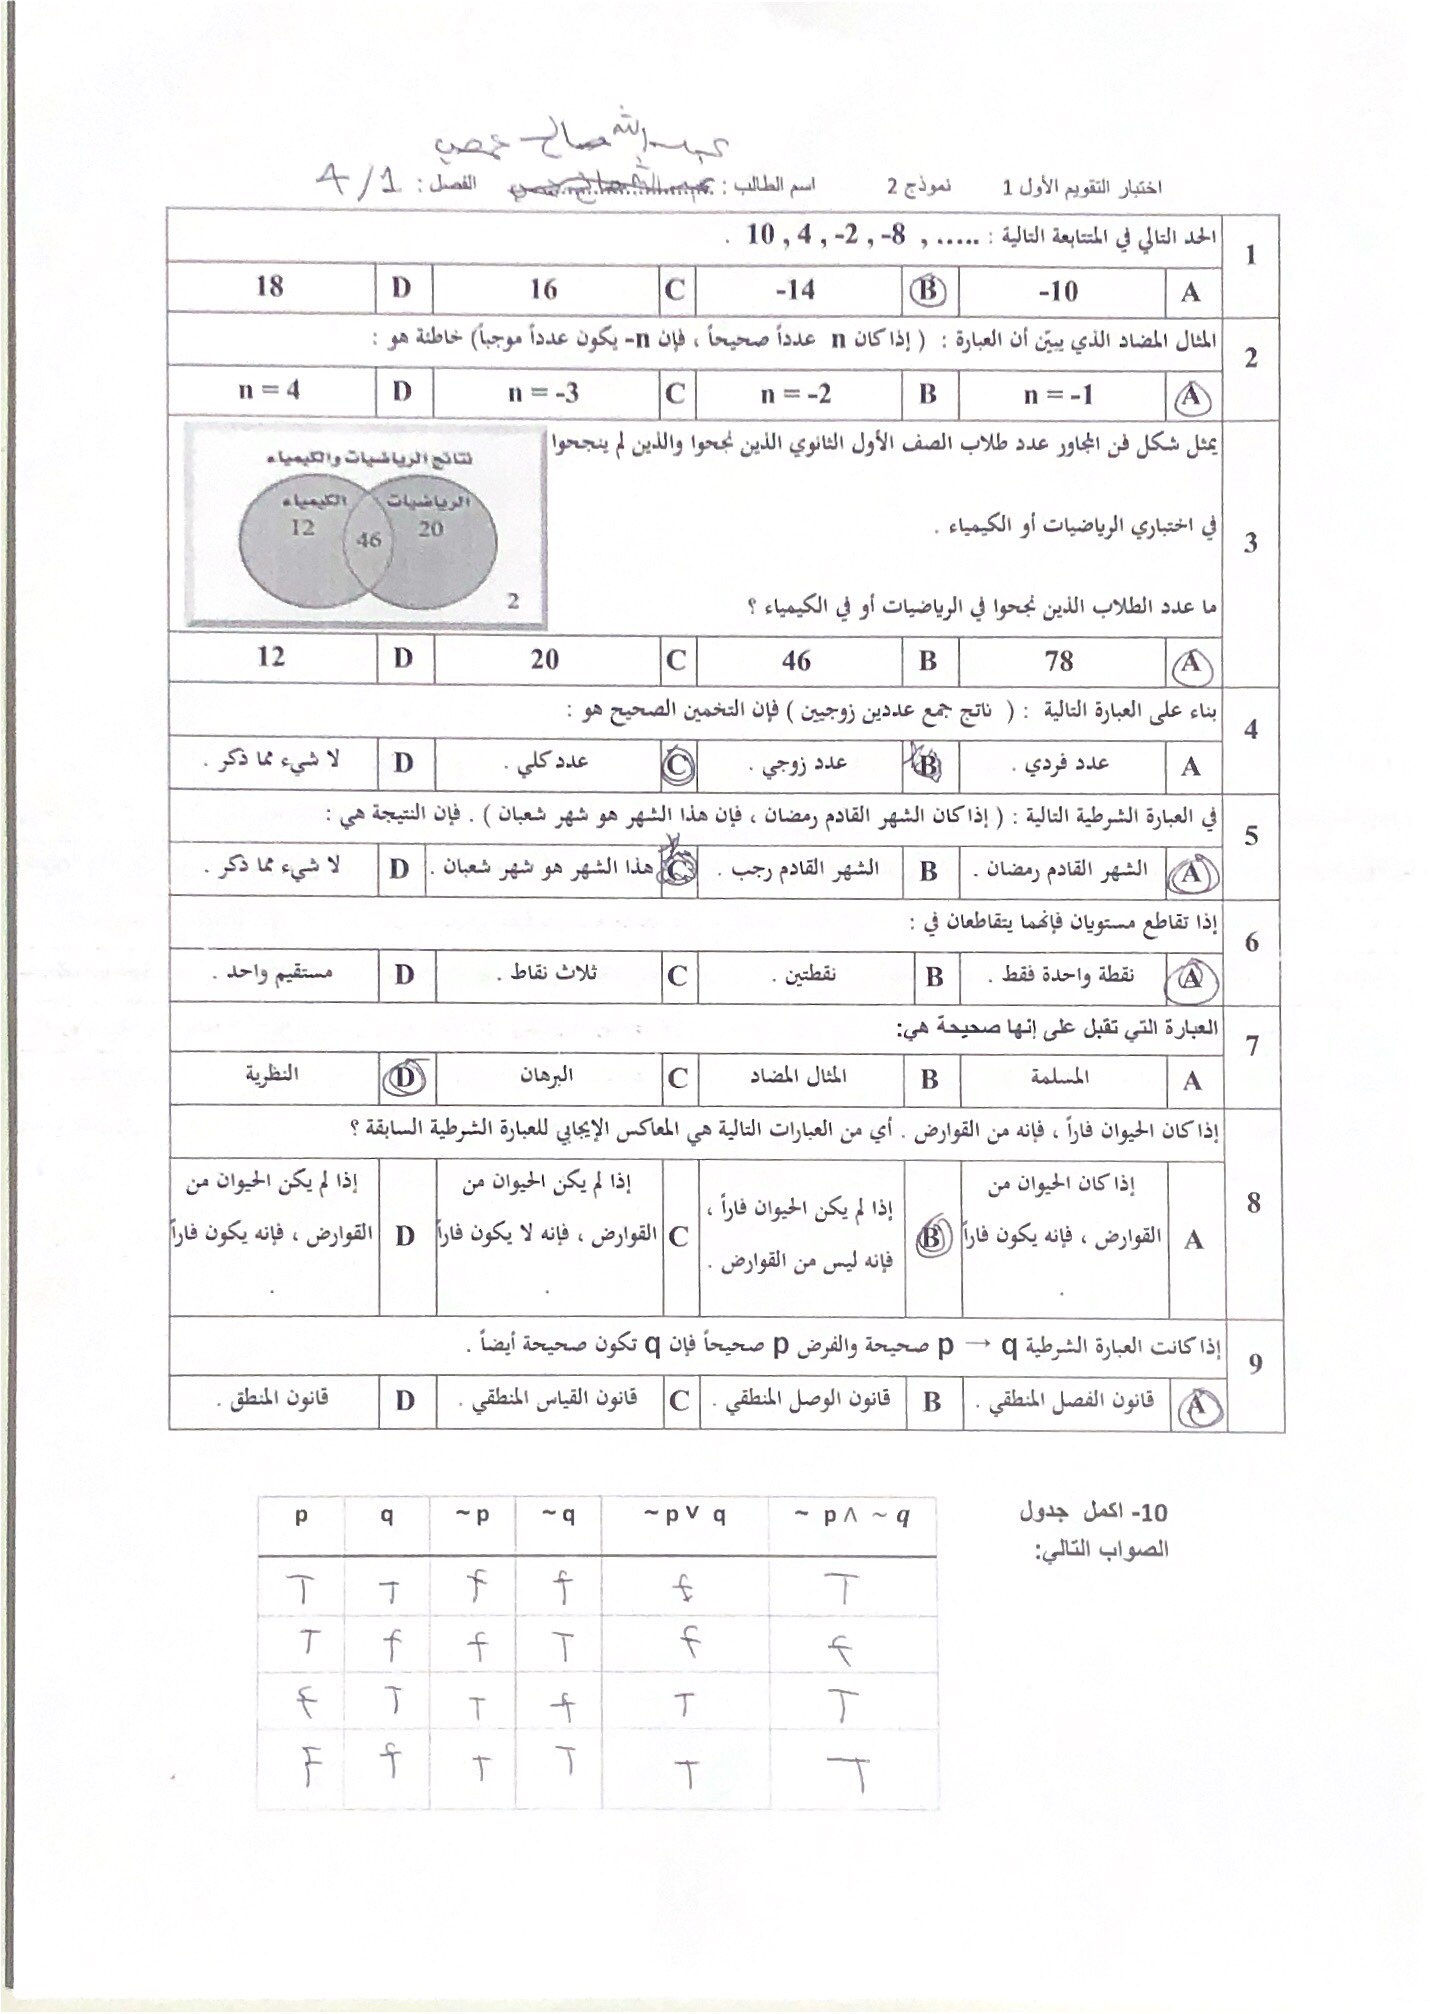 عبدالله صالح حمصي
اختبار التقويم الأول 1 نموذج 2 اسم الطالب : الفصل : 4/1
1 الحد التالي في المتتابعة التالية : 10 , 4 , -2 , -8 , ..... .
A -10 B -14 C 16 D 18
2 المثال المضاد الذي يبيّن أن العبارة : ( إذا كان n عدداً صحيحاً ، فإن n- يكون عدداً موجباً) خاطئة هو :
A n = -1 B n = -2 C n = -3 D n = 4
3 يمثل شكل فن المجاور عدد طلاب الصف الأول الثانوي الذين نجحوا والذين لم ينجحوا
في اختباري الرياضيات أو الكيمياء .
ما عدد الطلاب الذين نجحوا في الرياضيات أو في الكيمياء ؟
نتائج الرياضيات والكيمياء
الرياضيات الكيمياء
20 46 12
2
A 78 B 46 C 20 D 12
4 بناء على العبارة التالية : ( ناتج جمع عددين زوجيين ) فإن التخمين الصحيح هو :
A عدد فردي . B عدد زوجي . C عدد كلي . D لا شيء مما ذكر .
5 في العبارة الشرطية التالية : ( إذا كان الشهر القادم رمضان ، فإن هذا الشهر هو شهر شعبان ) . فإن النتيجة هي :
A الشهر القادم رمضان . B الشهر القادم رجب . C هذا الشهر هو شهر شعبان . D لا شيء مما ذكر .
6 إذا تقاطع مستويان فإنهما يتقاطعان في :
A نقطة واحدة فقط . B نقطتين . C ثلاث نقاط . D مستقيم واحد .
7 العبارة التي تقبل على إنها صحيحة هي:
A المسلمة B المثال المضاد C البرهان D النظرية
8 إذا كان الحيوان فاراً ، فإنه من القوارض . أي من العبارات التالية هي المعاكس الإيجابي للعبارة الشرطية السابقة ؟
A إذا كان الحيوان من القوارض ، فإنه يكون فاراً .
B إذا لم يكن الحيوان فاراً ، فإنه ليس من القوارض .
C إذا لم يكن الحيوان من القوارض ، فإنه لا يكون فاراً .
D إذا لم يكن الحيوان من القوارض ، فإنه يكون فاراً .
9 إذا كانت العبارة الشرطية p → q صحيحة والفرض p صحيحاً فإن q تكون صحيحة أيضاً .
A قانون الفصل المنطقي . B قانون الوصل المنطقي . C قانون القياس المنطقي . D قانون المنطق .
10- اكمل جدول
الصواب التالي:
p q ~p ~q ~p∨ q ~ p∧ ~q
T T f f f T
T f f T f f
f T T f T T
F f T T T T